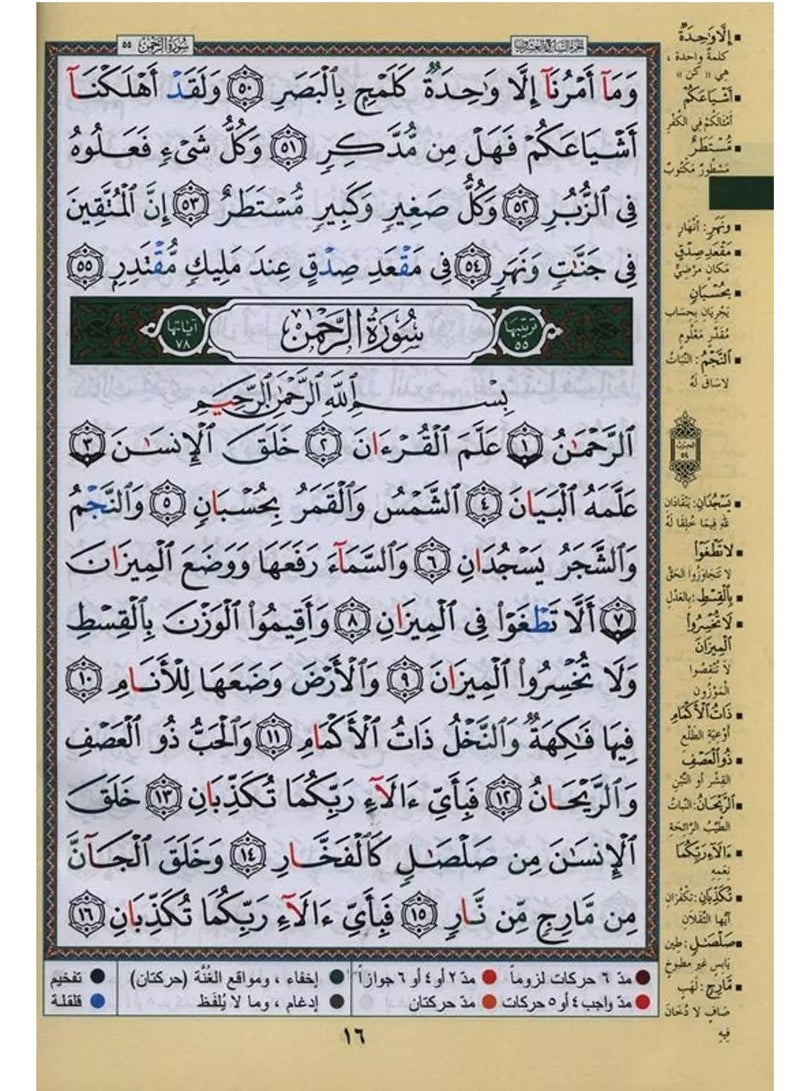 سُورَةُ الرَّحْمٰن ٥٥
الجزء السابع والعشرون
وَمَآ أَمْرُنَآ إِلَّا وَٰحِدَةٌ كَلَمْحٍۭ بِالْبَصَرِ ۝٥٠ وَلَقَدْ أَهْلَكْنَآ
أَشْيَاعَكُمْ فَهَلْ مِن مُّدَّكِرٍ ۝٥١ وَكُلُّ شَىْءٍ فَعَلُوهُ
فِى الزُّبُرِ ۝٥٢ وَكُلُّ صَغِيرٍ وَكَبِيرٍ مُّسْتَطَرٌ ۝٥٣ إِنَّ الْمُتَّقِينَ
فِى جَنَّٰتٍ وَنَهَرٍ ۝٥٤ فِى مَقْعَدِ صِدْقٍ عِندَ مَلِيكٍ مُّقْتَدِرٍۭ ۝٥٥
ترتيبها ٥٥ سُورَةُ الرَّحْمٰن آياتها ٧٨
بِسْمِ اللَّهِ الرَّحْمَٰنِ الرَّحِيمِ
الرَّحْمَٰنُ ۝١ عَلَّمَ الْقُرْءَانَ ۝٢ خَلَقَ الْإِنسَٰنَ ۝٣
عَلَّمَهُ الْبَيَانَ ۝٤ الشَّمْسُ وَالْقَمَرُ بِحُسْبَانٍ ۝٥ وَالنَّجْمُ
وَالشَّجَرُ يَسْجُدَانِ ۝٦ وَالسَّمَآءَ رَفَعَهَا وَوَضَعَ الْمِيزَانَ
۝٧ أَلَّا تَطْغَوْا۟ فِى الْمِيزَانِ ۝٨ وَأَقِيمُوا۟ الْوَزْنَ بِالْقِسْطِ
وَلَا تُخْسِرُوا۟ الْمِيزَانَ ۝٩ وَالْأَرْضَ وَضَعَهَا لِلْأَنَامِ ۝١٠
فِيهَا فَٰكِهَةٌ وَالنَّخْلُ ذَاتُ الْأَكْمَامِ ۝١١ وَالْحَبُّ ذُو الْعَصْفِ
وَالرَّيْحَانُ ۝١٢ فَبِأَىِّ ءَالَآءِ رَبِّكُمَا تُكَذِّبَانِ ۝١٣ خَلَقَ
الْإِنسَٰنَ مِن صَلْصَٰلٍ كَالْفَخَّارِ ۝١٤ وَخَلَقَ الْجَآنَّ
مِن مَّارِجٍ مِّن نَّارٍ ۝١٥ فَبِأَىِّ ءَالَآءِ رَبِّكُمَا تُكَذِّبَانِ ۝١٦
إِلَّا وَٰحِدَةٌ
كلمة واحدة ،
هي « كن »
أَشْيَاعَكُمْ
أمثالكم في الكفر
مُّسْتَطَرٌ
مسطور مكتوب
وَنَهَرٍ: أنهار
مَقْعَدِ صِدْقٍ
مكان مرضي
بِحُسْبَانٍ
يجريان بحساب
مقدر معلوم
النَّجْمُ: النبات
لا ساق له
الحزب ٥٤
يَسْجُدَانِ: ينقادان
لله فيما خلقا له
لا تَطْغَوْا
لا تتجاوزوا الحق
بِالْقِسْطِ: بالعدل
لَا تُخْسِرُوا
الْمِيزَانَ
لا تنقصوا
الموزون
ذَاتُ الْأَكْمَامِ
أوعية الطلع
ذُو الْعَصْفِ
القشر أو التبن
الرَّيْحَانُ: النبات
الطيب الرائحة
ءَالَآءِ رَبِّكُمَا
نعمه
تُكَذِّبَانِ: تكفران
أيها الثقلان
صَلْصَٰلٍ: طين
يابس غير مطبوخ
مَّارِجٍ: لهب
صاف لا دخان
فيه
مدّ ٦ حركات لزوماً مدّ ٢ أو ٤ أو ٦ جوازاً إخفاء ، ومواقع الغُنَّة (حركتان) تفخيم
مدّ واجب ٤ أو ٥ حركات مدّ حركتان إدغام ، وما لا يُلفَظ قلقلة
١٦